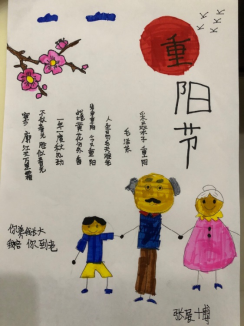 重
阳
节
采桑子 重阳
毛泽东
人生易老天难老
岁岁重阳 今又重阳
战地黄花分外香
一年一度秋风劲
不似春光 胜似春光
寥廓江天万里霜
你养我长大
我陪你到老